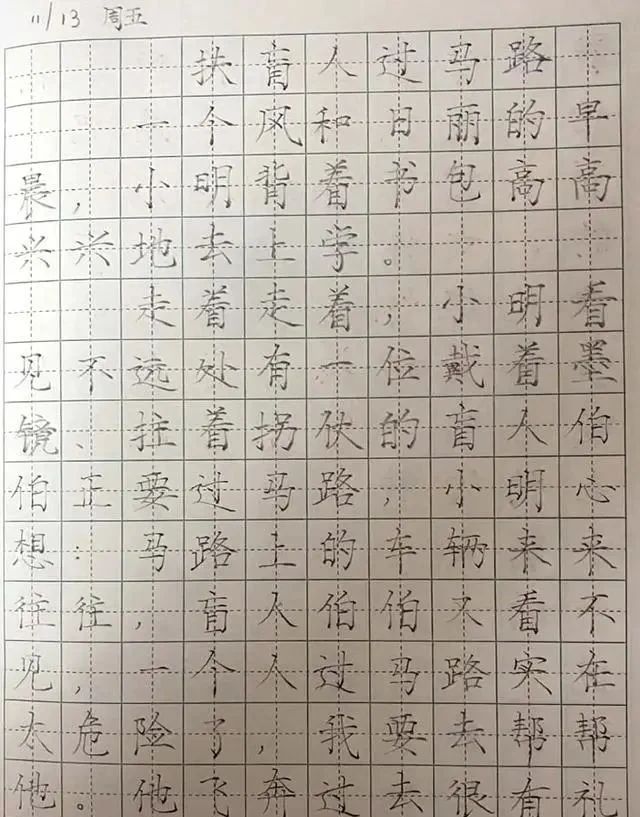 11/13 周五
扶盲人过马路
一个风和日丽的早
晨，小明背着书包高高
兴兴地去上学。
走着走着，小明看
见不远处有一位戴着墨
镜、拄着拐伏的盲人伯
伯正要过马路，小明心
想：马路上的车辆来来
往往，盲人伯伯又看不
见，一个人过马路实在
太危险了，我要去帮帮
他。他飞奔过去很有礼